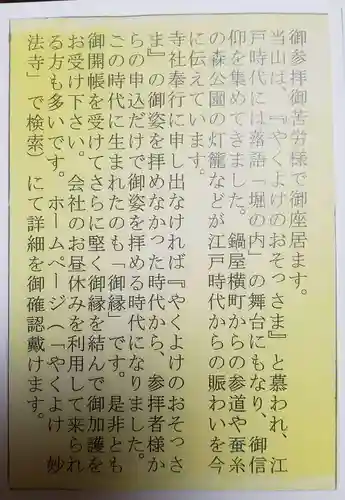 御参拝御苦労様で御座居ます。
当山は、『やくよけのおそっさま』と慕われ、江
戸時代には落語「堀の内」の舞台にもなり、御信
仰を集めてきました。鍋屋横町からの参道や蚕糸
の森公園の灯籠などが江戸時代からの賑わいを今
に伝えています。
寺社奉行に申し出なければ『やくよけのおそっさ
ま』の御姿を拝めなかった時代から、参拝者様か
らの申込だけで御姿を拝める時代になりました。
この時代に生まれたのも「御縁」です。是非とも
御開帳を受けてさらに堅く御縁を結んで御加護を
お受け下さい。会社のお昼休みを利用して来られ
る方も多いです。ホームページ(「やくよけ 妙
法寺」で検索)にて詳細を御確認戴けます。